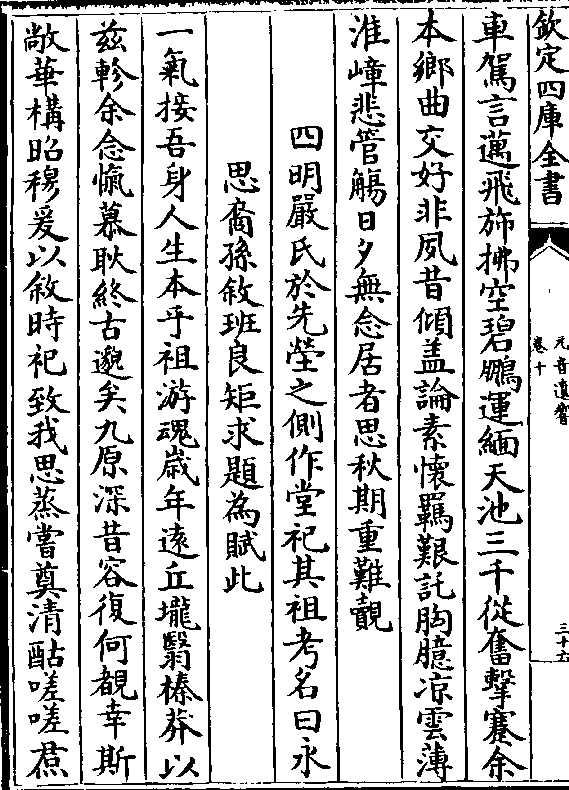 欽定四庫全書
元音遺響
卷十
三十六
車駕言邁飛斾拂空碧鵬運緬天池三千從奮擊蹇余
本鄉曲交好非夙昔傾盖論素懷羈艱託胸臆凉雲薄
淮嶂悲管觴日夕無念居者思秋期重難覿
四明嚴氏於先塋之側作堂祀其祖考名曰永
思裔孫敘班良矩求題為賦此
一氣接吾身人生本乎祖游魂歲年遠丘壠翳榛莽以
兹軫余念愾慕耿終古邈矣九原深昔容復何覩幸斯
敞華構昭穆爰以敘時祀致我思蒸嘗奠清酤嗟嗟焄